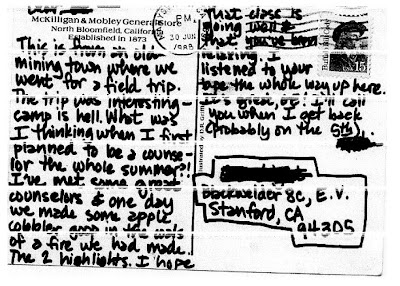 McKilligan & Mobley General Store
North Bloomfield, California
Established in 1873
This is from an old
mining town where we
went for a field trip.
The trip was interesting -
camp is hell. What was
I thinking when I first
planned to be a counse-
lor the whole summer?!
I've met some great
counselors & one day
we made some apple
cobbler goop in the coals
of a fire we had made.
The 2 highlights. I hope
that class is
going well &
that you've been
making. I
listened to your
tape the whole way up here.
It's great, JC! I'll call
you when I get back
(probably on the 5th).
PM
30 JUN
1988
Buffalo Bill Cody
USA
15
Blackwelder 8C, E.V.
Stanford, CA
94305